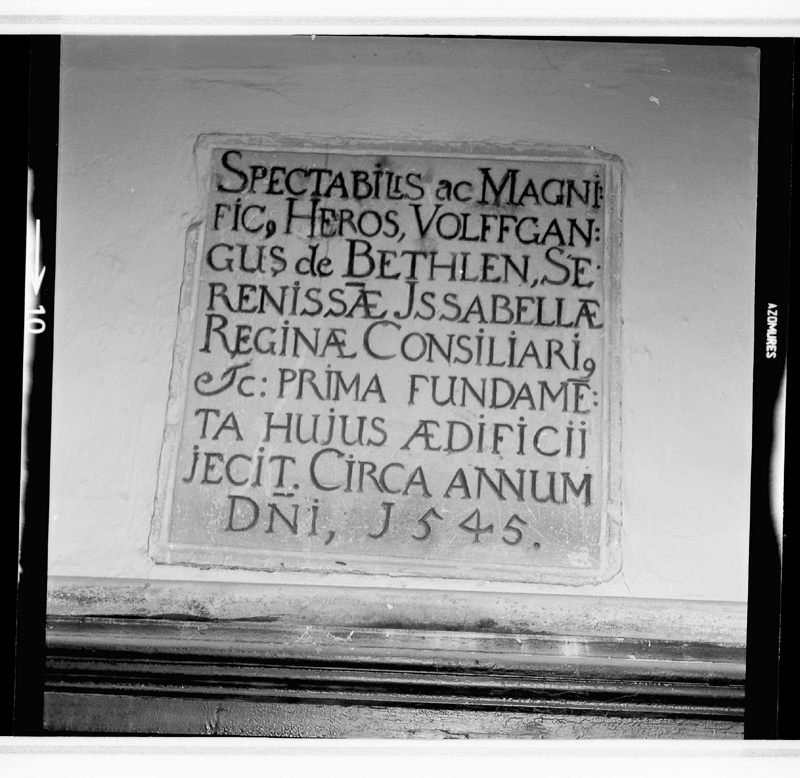 SPECTABILIS ac MAGNI:
FIC9 HEROS, VOLFFGAN:
GUS de BETHLEN, SE:
RENISSÆ JSSABELLÆ
REGINÆ CONSILIARI9
&c: PRIMA FUNDAMĒ:
TA HUJUS ÆDIFICIJ
JECIT. CIRCA ANNUM
DN̄I, J545.
10
AZOMUREȘ